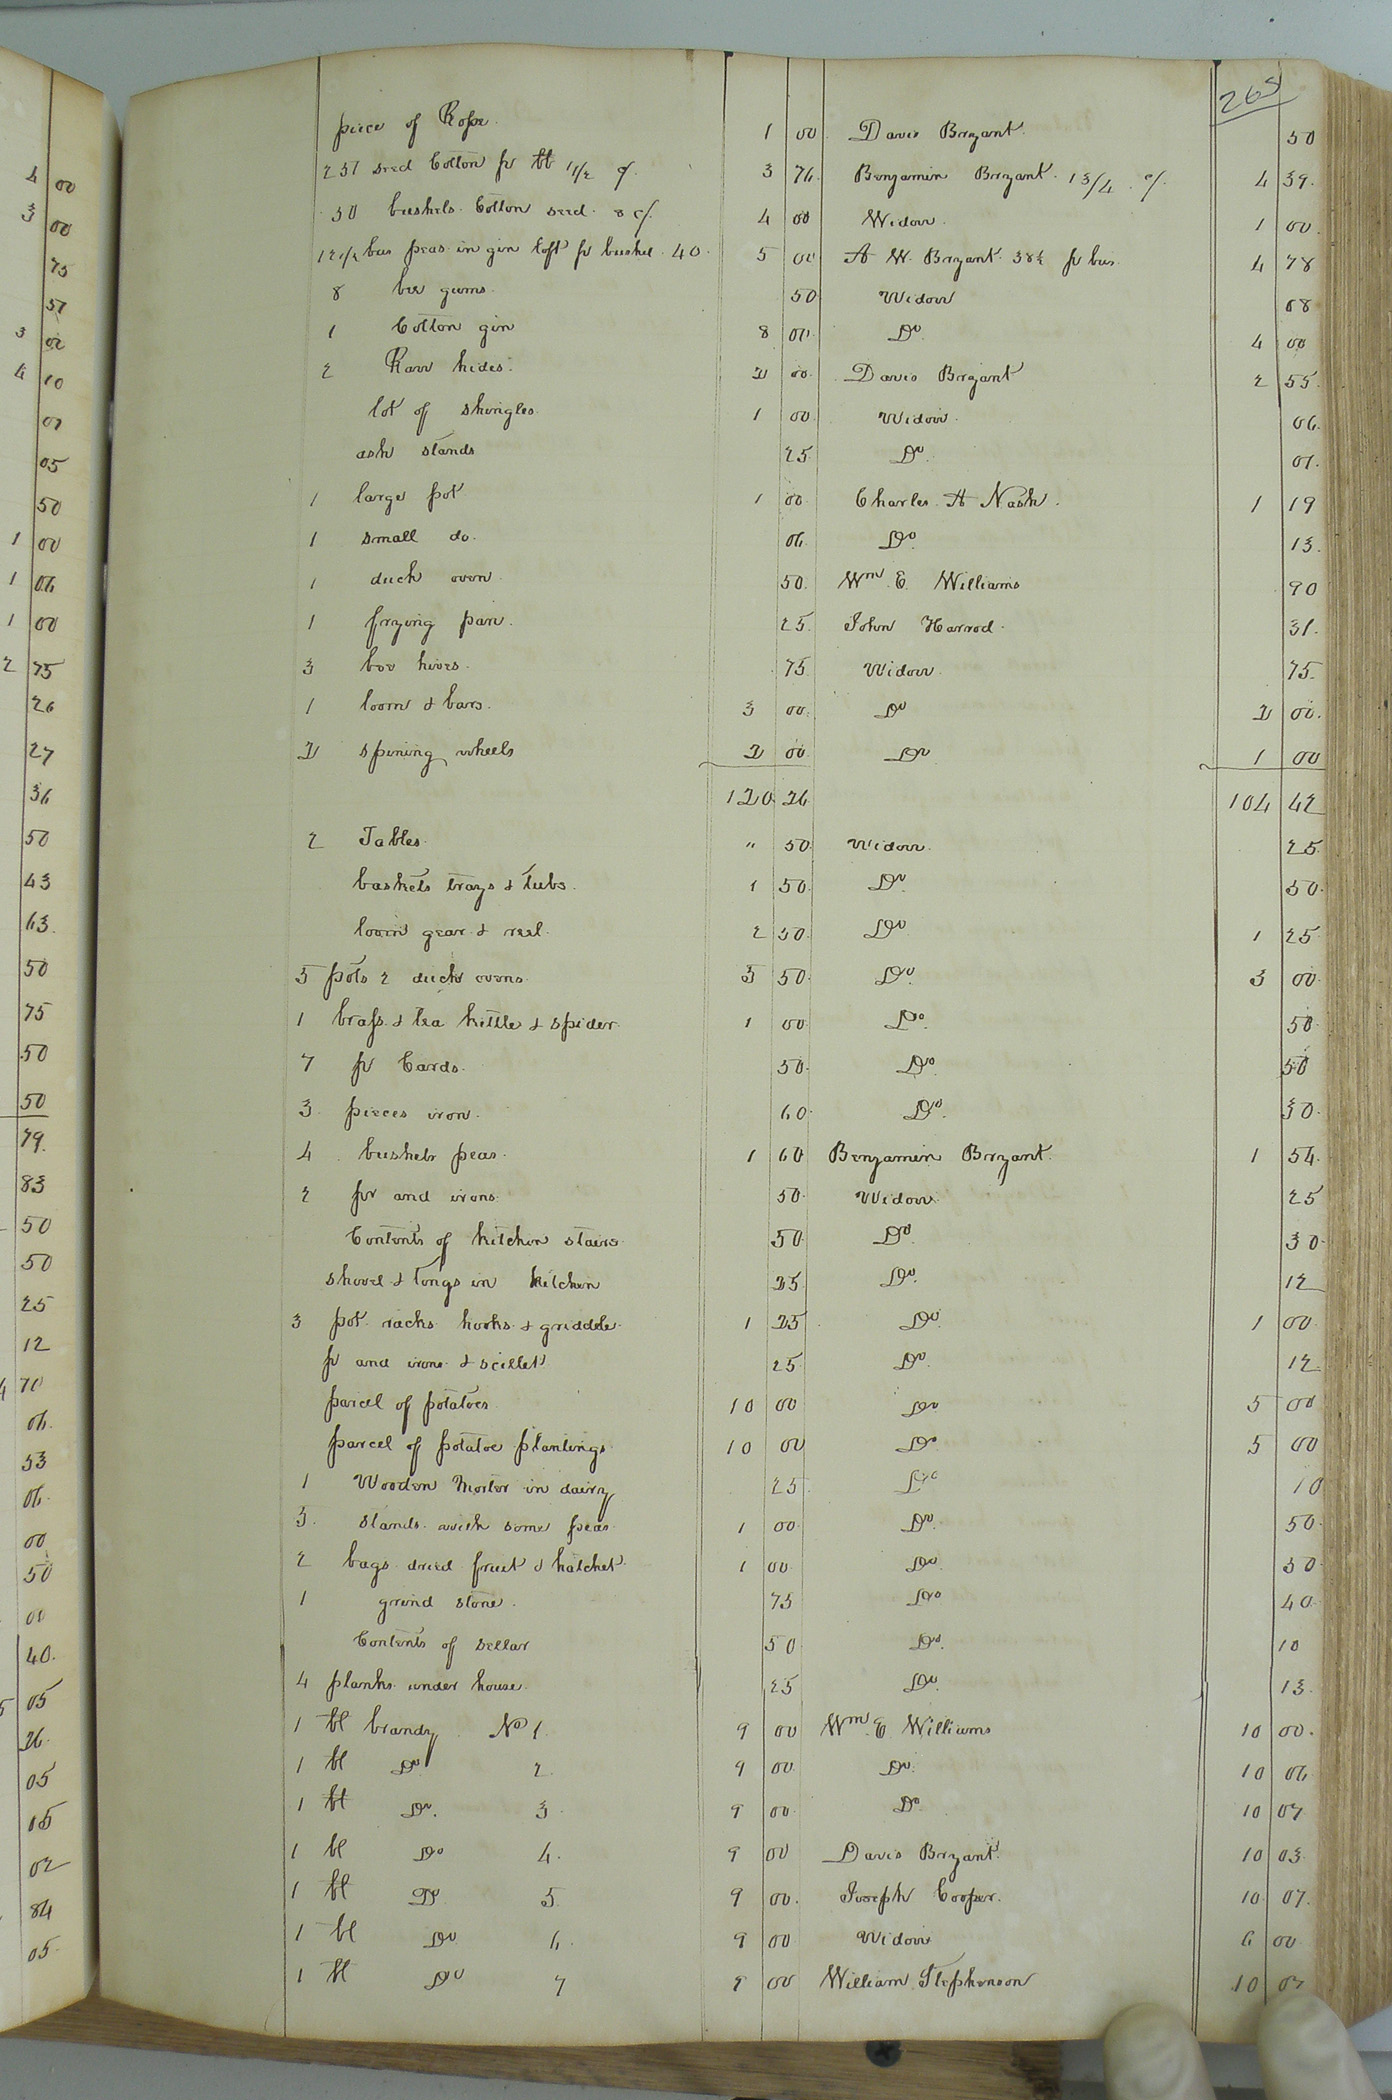 4 00
3 00
75
57
3 00
4 10
07
05
50
1 00
1 06
1 00
2 75
26
27
36
50
43
63
50
75
50
50
79
83
50
50
25
12
4 70
06
53
06
00
50
00
40
5 05
26
05
15
02
84
05
265
piece of Rope 1 00 Davis Bryant 50
251 seed Cotton pr lb 1 1/2 c/. 3 76 Benjamin Bryant 1 3/4 c/. 4 39
50 bushels Cotton seed 8 c/. 4 00 Widow 1 00
12 1/2 bus peas in gin loft pr bushel 40 5 00 A W Bryant 38 1/4 pr bus 4 78
8 bee gums 50 Widow 08
1 Cotton gin 8 00 Do 4 00
2 Raw hides 2 00 Davis Bryant 2 55
lot of shingles 1 00 Widow 06
ash stands 25 Do 01
1 large pot 1 00 Charles A Nash 1 19
1 small do 06 Do 13
1 duch oven 50 Wm E Williams 90
1 frying pan 25 John Harrod 31
3 bee hives 75 Widow 75
1 loom & bars 3 00 Do 2 00
2 spining wheels 2 00 Do 1 00
120 26 104 42
2 Tables " 50 Widow 25
baskets trays & tubs 1 50 Do 50
loom gear & reel 2 50 Do 1 25
5 pots 2 duch ovens 3 50 Do 3 00
1 brass & tea kittle & spider 1 00 Do 50
7 pr Cards 50 Do 50
3 pieces iron 60 Do 30
4 bushels peas 1 60 Benjamin Bryant 1 54
2 pr and irons 50 Widow 25
Contents of kitchen stairs 50 Do 30
shovel & tongs in kitchen 25 Do 12
3 pot racks hooks & griddle 1 25 Do 1 00
pr and irons & scillet 25 Do 12
parcel of potatoes 10 00 Do 5 00
parcel of potatoe plantings 10 00 Do 5 00
1 Wooden Morter in dairy 25 Do 10
3 stands with some peas 1 00 Do 50
2 bags dried fruit & hatchet 1 00 Do 50
1 grind stone 75 Do 40
Contents of sellar 50 Do 10
4 planks under house 25 Do 13
1 bl brandy No 1 9 00 Wm E Williams 10 00
1 bl Do 2 9 00 Do 10 06
1 bl Do 3 9 00 Do 10 07
1 bl Do 4 9 00 Davis Bryant 10 03
1 bl Do 5 9 00 Joseph Cooper 10 07
1 bl Do 6 9 00 Widow 6 00
1 bl Do 7 9 00 William Stephenson 10 07